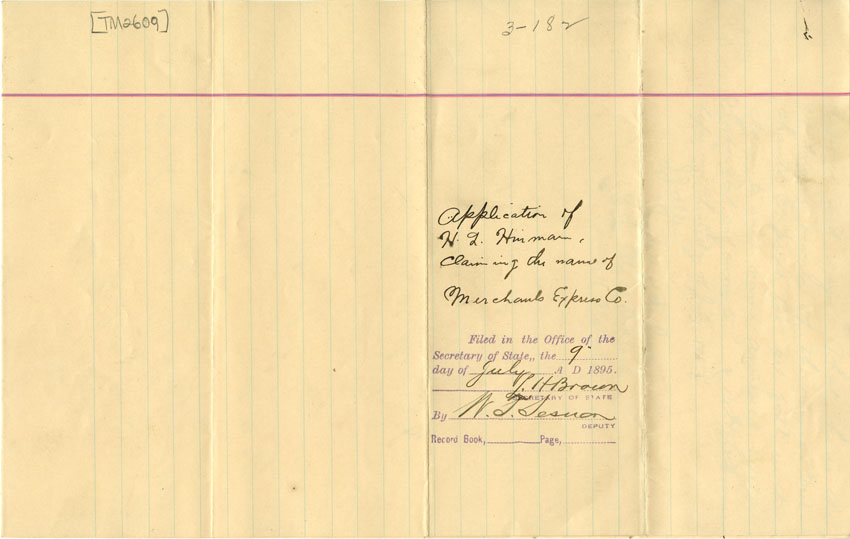 [TM2609]
3-182
Application of
H. L. Hinman,
Claiming the name of
Merchants Express Co.
Filed in the Office of the
Secretary of State,, the 9"
day of July A D 1895.
L. H. Brown
SECRETARY OF STATE
By W. T. Lesnon
DEPUTY
Record Book, Page,